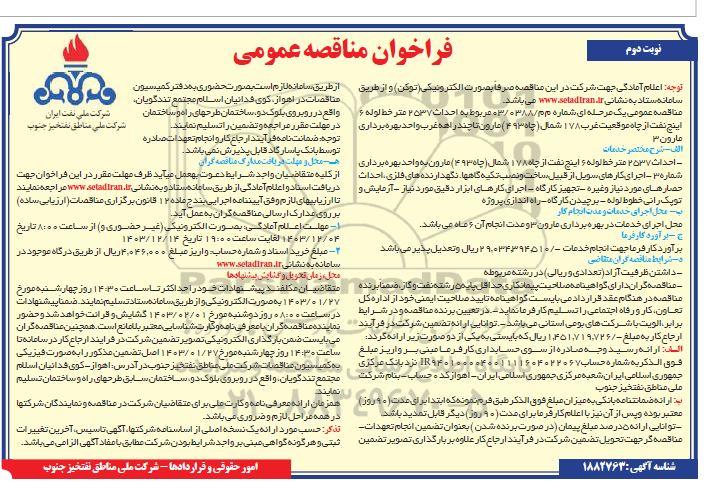 نوبت دوم
فراخوان مناقصه عمومی
شرکت ملی نفت ایران
شرکت ملی مناطق نفتخیز جنوب
توجه: اعلام آمادگی جهت شرکت در این مناقصه صرفاً بصورت الکترونیکی (توکن) و از طریق
سامانه ستاد به نشانی www.setadIran.ir می باشد.
مناقصه عمومی یک مرحله ای شماره م م/03/0388 مربوط به احداث 2537 متر خط لوله 6
اینچ نفت از چاه موقعیت غرب 178 شمال (چاه 493) مارون تا چندراهه غرب واحد بهره برداری
مارون 3
الف- شرح مختصر خدمات
- احداث 2537 متر خط لوله 6 اینچ نفت از چاه 178 شمال (چاه 493) مارون به واحد بهره برداری
شماره 3 - اجرای کارهای سویل از قبیل ساخت و نصب تکیه گاهها، نگهدارنده های فلزی، احداث
حصارهای مورد نیاز و غیره - تجهیز کارگاه - اجرای کارهای ابزار دقیق مورد نیاز - آزمایش و
توپک رانی خطوط لوله - برچیدن کارگاه - راه اندازی پروژه
ب- محل اجرای خدمات و مدت انجام کار
محل اجرای خدمات در بهره برداری مارون 3 و مدت انجام آن 6 ماه می باشد.
ج- برآورد کارفرما
برآورد کارفرما جهت انجام خدمات 29,034,394,510/- ریال و تعدیل پذیر می باشد
د- شرایط مناقصه گران متقاضی
- داشتن ظرفیت آزاد (تعدادی و ریالی) در رشته مربوطه
- مناقصه گران دارای گواهینامه صلاحیت پیمانکاری حداقل پایه 5 رشته نفت و گاز، ضمنا برنده
مناقصه در هنگام عقد قرارداد می بایست گواهینامه تایید صلاحیت ایمنی خود از اداره کل
تعاون، کار و رفاه اجتماعی را تسلیم کارفرما نماید - در تعیین برنده مناقصه و در شرایط
برابر، الویت با شرکت های بومی استانی می باشد. - توانایی ارائه تضمین شرکت در فرآیند
ارجاع کار به مبلغ 1,451,719,726/- ریال که بایستی به یکی از دو صورت زیر ارائه گردد:
الف: ارائه رسید وجه صادره از سوی حسابداری کارفرما مبنی بر واریز مبلغ
فوق الذکر به شماره حساب IR940100004001111604022067 نزد بانک مرکزی
جمهوری اسلامی ایران شعبه مرکزی جمهوری اسلامی ایران - اهواز کد حساب - بنام شرکت
ملی مناطق نفتخیز جنوب
ب: ارائه ضمانتنامه بانکی به میزان مبلغ فوق الذکر طبق فرم نمونه که ابتدا برای مدت (90 روز)
معتبر بوده و پس از آن نیز با اعلام کارفرما برای مدت (90 روز) دیگر قابل تمدید باشد.
- توانایی ارائه 5 درصد مبلغ پیمان (در صورت برنده شدن) بعنوان تضمین انجام تعهدات -
مناقصه گر جهت تحویل تضمین شرکت در فرآیند ارجاع کار علاوه بر بارگذاری تصویر تضمین
از طریق سامانه لازم است بصورت حضوری به دفتر کمیسیون
مناقصات در اهواز، کوی فدائیان اسلام مجتمع تندگویان،
واقع در روبروی بلوک دو، ساختمان طرحهای راه و ساختمان
در مهلت مقرر مراجعه و تضمین را تسلیم نمایند.
توجه: ضمانت نامه فرآیند ارجاع کار و انجام تعهدات صادره
توسط بانک پاسارگاد قابل پذیرش نمی باشد.
هـ- محل و مهلت دریافت مدارک مناقصه گران
از کلیه متقاضیان واجد شرایط دعوت بعمل می آید ظرف مهلت مقرر در این فراخوان جهت
دریافت اسناد و اعلام آمادگی از طریق سامانه ستاد به نشانی www.setadIran.ir مراجعه نمایند
تا ارزیابیهای لازم وفق آیین نامه اجرایی بند ج ماده 12 قانون برگزاری مناقصات (ارزیابی ساده)
بر روی مدارک ارسالی مناقصه گران به عمل آید.
1- مهلت اعلام آمادگی، بصورت الکترونیکی (غیر حضوری و) از ساعت 8:00 تاریخ
1403/12/04 لغایت ساعت 19:00 تاریخ 1403/12/14
2- مبلغ خرید اسناد و شماره حساب: واریز مبلغ 4,046,000 ریال از طریق درگاه موجود در
سامانه به نشانی www.setadIran.ir
محل، زمان تحویل و گشایش پیشنهادها
متقاضیان مکلفند پیشنهادات خود را حداکثر تا ساعت 14:30 روز چهارشنبه مورخ
1403/01/27 به صورت الکترونیکی و از طریق سامانه ستاد تسلیم نمایند. ضمنا پیشنهادات
در ساعت 08:00 روز دوشنبه مورخ 1403/02/01 گشایش و قرائت خواهد شد و حضور
نماینده مناقصه گران با معرفی نامه و کارت شناسایی معتبر بلامانع است. همچنین مناقصه گران
می بایست ضمن بارگذاری الکترونیکی تصویر تضمین شرکت در فرایند ارجاع کار در سامانه تا
ساعت 14:30 روز چهارشنبه مورخ 1403/01/27 اصل تضمین مذکور را به صورت فیزیکی
به کمیسیون مناقصات شرکت ملی مناطق نفتخیز جنوب در آدرس: اهواز - کوی فدائیان اسلام
مجتمع تندگویان، واقع در روبروی بلوک دو، ساختمان سابق طرحهای راه و ساختمان تسلیم
نمایند.
همزمان ارائه معرفی نامه و کارت ملی برای متقاضیان شرکت در مناقصه و نمایندگان شرکتها
در همه مراحل لازم و ضروری می باشد.
تذکر: حسب مورد ارائه یک نسخه اصلی از اساسنامه شرکتها، آگهی تاسیس، آخرین تغییرات
ثبتی و هرگونه گواهی مبنی بر واجد شرایط بودن شرکت مطابق با مفاد آگهی الزامی می باشد.
شناسه آگهی: 1882763
امور حقوقی و قراردادها - شرکت ملی مناطق نفتخیز جنوب